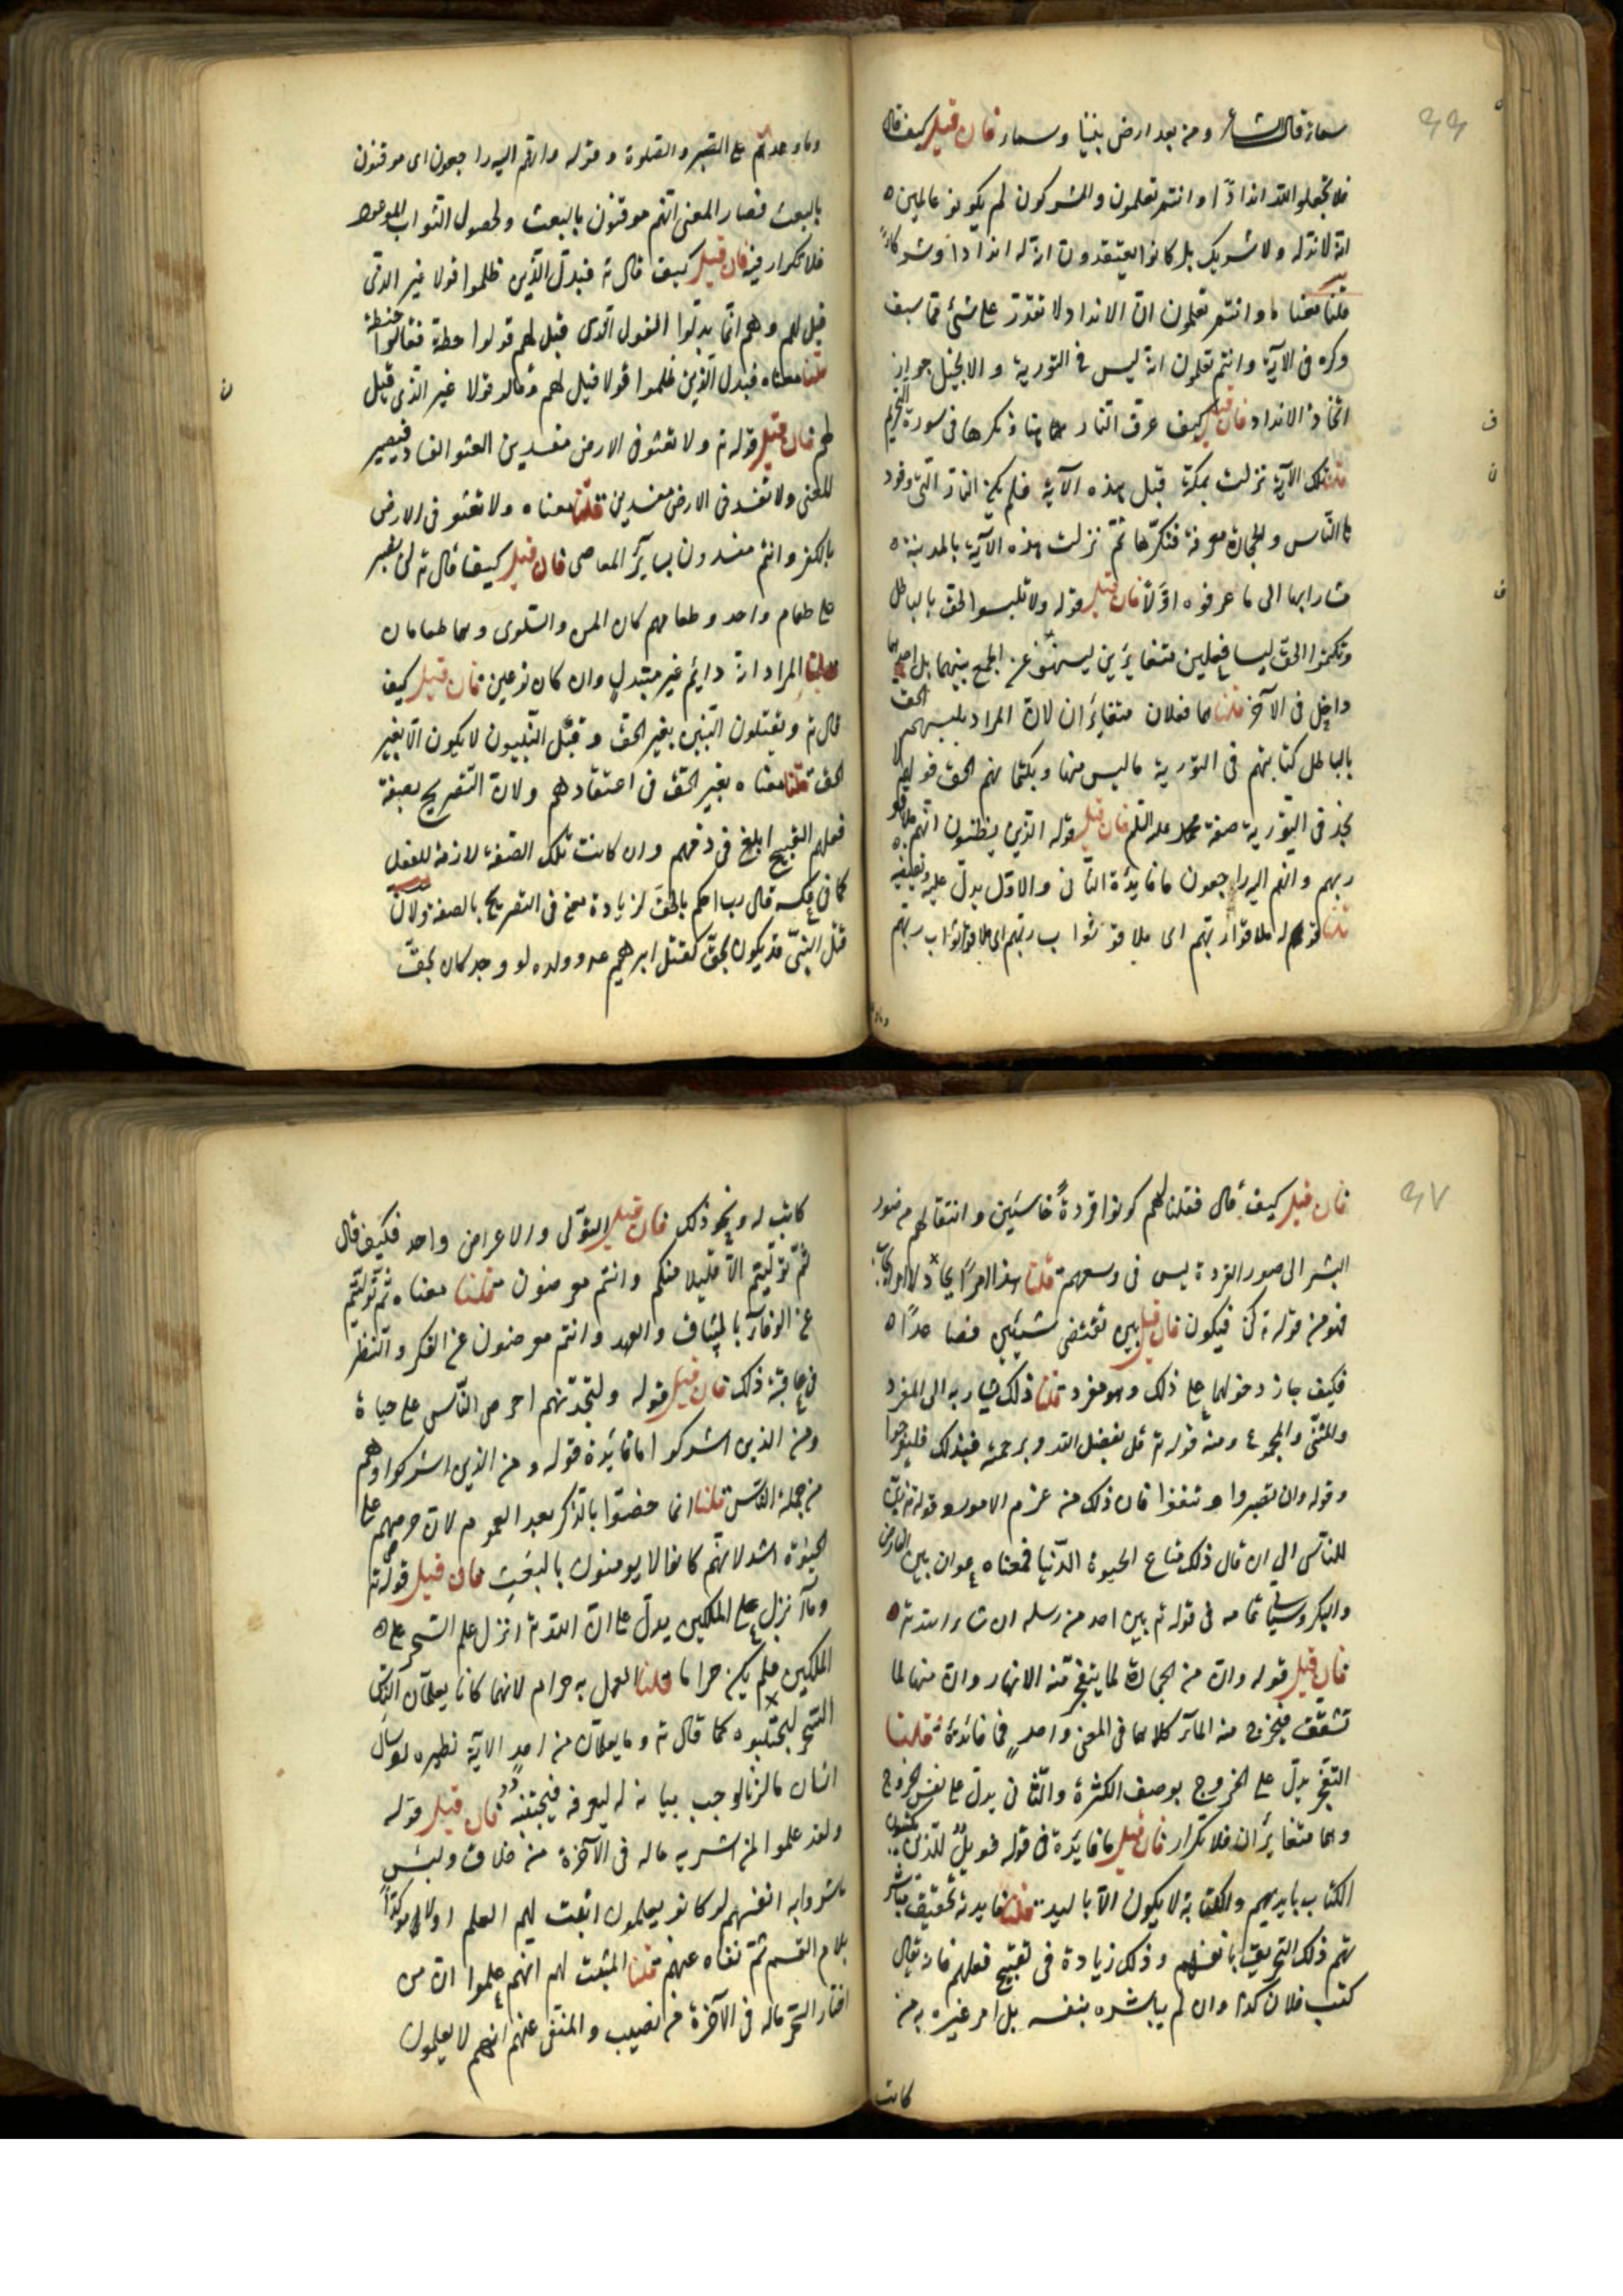 سمائه قال الشاعر ومن بعد ارض بيننا وسماء فان قيل كيف قال
فلا تجعلوا لله اندادًا وانتم تعلمون والمشركون لم يكونوا عالمين ه
انه لا ند له ولا شريك بل كانوا يعتقدون ان له اندادا وشركاء
قلنا معناه وانتم تعلمون ان الانداد لا تقدر على شئ مما سبق
ذكره فى الآية وانتم تعلمون انه ليس فى التورية والانجيل جواز
اتخاذ الانداد فان قيل كيف عرف النار هاهنا ونكرها فى سورة التحريم
قلنا تلك الآية نزلت بمكة قبل هذه الآية فلم يكن النار التى وقود
ها الناس والحجارة معرفة فنكرها ثم نزلت هذه الآية بالمدينة ه
مشارا بها الى ما عرفوه اوّلا فان قيل قوله ولا تلبسوا الحق بالباطل
وتكتموا الحق ليسا فعلين متغايرين لينهوا عن الجمع بينهما بل احدهما
داخل فى الآخر قلنا هما فعلان متغايران لان المراد بلبسهم الحق
بالباطل كتابتهم فى التورية ما ليس منها وبكتمانهم الحق قولهم لا
نجد فى التورية صفة محمد عليه السلم فان قيل قوله الذين يظنون انهم ملاقو
ربهم وانهم اليه راجعون ما فايدة الثانى والاول يدل عليه
قلنا قوله ملاقوا ربهم اى ملاقوا ثواب ربهم اى ملاقوا ثواب ربهم
وما وعدهم على الصبر والصلوة وقوله وانهم اليه راجعون اى موقنون
بالبعث فصار المعنى انهم موقنون بالبعث ولحصول الثواب الموعود
فلا تكرار فيه فان قيل كيف قال ته فبدل الذين ظلموا قولا غير الذى
قيل لهم وهم انما بدلوا القول الذى قيل لهم قولوا حطة فقالوا حنطة
قلنا معناه فبدل الذين ظلموا قولا قيل لهم وقالوا قولا غير الذى قيل
لهم فان قيل قوله ته ولا تعثوا فى الارض مفسدين العثو الفساد فيصير
المعنى ولا تفسدوا فى الارض مفسدين قلنا معناه ولا تعثو فى الارض
بالكفر وانتم مفسدون بساير المعاصى فان قيل كيف قال ته لن نصبر
على طعام واحد وطعامهم كان المن والسلوى وهما طعامان
قلنا المراد انه دايم غير متبدل وان كان نوعين فان قيل كيف
قال ته ويقتلون النبيين بغير الحق وقتل النبيون لا يكون الا بغير
الحق قلنا معناه بغير الحق فى اعتقادهم ولان التصريح بصفة
فعلهم القبيح ابلغ فى ذمهم وان كانت تلك الصفة لازمة للفعل
كما فى عكسه قال رب احكم بالحق لزيادة معنى فى التصريح بالصفة ولان
قتل النبى قد يكون بحق كقتل ابرهيم عه وولده لو وجد كان بحق
فان قيل كيف قال فقلنا لهم كونوا قردةً خاسئين وانتقالهم من صور
البشر الى صور القردة ليس فى وسعهم قلنا هذا امر ايجاد لا امر ايجاب
فهو من قوله ته كن فيكون فان قيل بين تقتضى شيئين فصاعدًا ه
فكيف جاز دخولها على ذلك وهو مفرد قلنا ذلك يشار به الى المفرد
والمثنى والمجموع ومنه قوله ته قل بفضل الله وبرحمته فبذلك فليفرحوا
وقوله وان تصبروا وتتقوا فان ذلك من عزم الامور وقوله ته زين
للناس الى ان قال ذلك متاع الحيوة الدنيا فمعناه عوان بين الفارض
والبكر وسياتى تمامه فى قوله ته بين احد من رسله ان شاء الله ته ه
فان قيل قوله وان من الحجارة لما يتفجر منه الانهار وان منها لما
تشقق فيخرج منه الماء كلاهما فى المعنى واحد فما فائدته قلنا
التفجر يدل على الخروج بوصف الكثرة والثانى يدل على نفس الخروج
وهما متغايران فلا تكرار فان قيل ما فايدة فى قوله فويل للذين يكتبون
الكتاب بايديهم والكتابة لا يكون الا باليد قلنا فايدته تحقيق مباشر
تهم ذلك التحريف بانفسهم وذلك زيادة فى تقبيح فعلهم فانه يقال
كتب فلان كذا وان لم يباشره بنفسه بل امر غيره به من
كاتب
كاتب له ونحو ذلك فان قيل التولى والاعراض واحد فكيف قال
ثم توليتم الا قليلا منكم وانتم معرضون قلنا معناه ثم توليتم
عن الوفاء بالميثاق والعهد وانتم معرضون عن الفكر والنظر
فى عاقبة ذلك فان قيل قوله ولتجدنهم احرص الناس على حياة
ومن الذين اشركوا ما فائدة قوله ومن الذين اشركوا وهم
من جملة الناس قلنا انما خصوا بالذكر بعد العموم لان حرصهم على
الحيوة اشد لانهم كانوا لا يومنون بالبعث فان قيل قوله ته
وما انزل على الملكين يدل على ان الله ته انزل علم السحر على ه
الملكين فلم يكن حراما قلنا العمل به حرام لانهما كانا يعلمان الناس
السحر ليجتنبوه كما قال ته وما يعلمان من احدٍ الاية نظيره لو سال
انسان ما الزنا لوجب بيانه له ليعرفه فيجتنبه فان قيل قوله
ولقد علموا لمن اشتريه ماله فى الآخرة من خلاق ولبئس
ما شروا به انفسهم لو كانوا يعلمون اثبت لهم العلم اولا مؤكدًا
بلام القسم ثم نفاه عنهم قلنا المثبت لهم انهم علموا ان من
اختار السحر ماله فى الآخرة من نصيب والمنفى عنهم انهم لا يعلمون